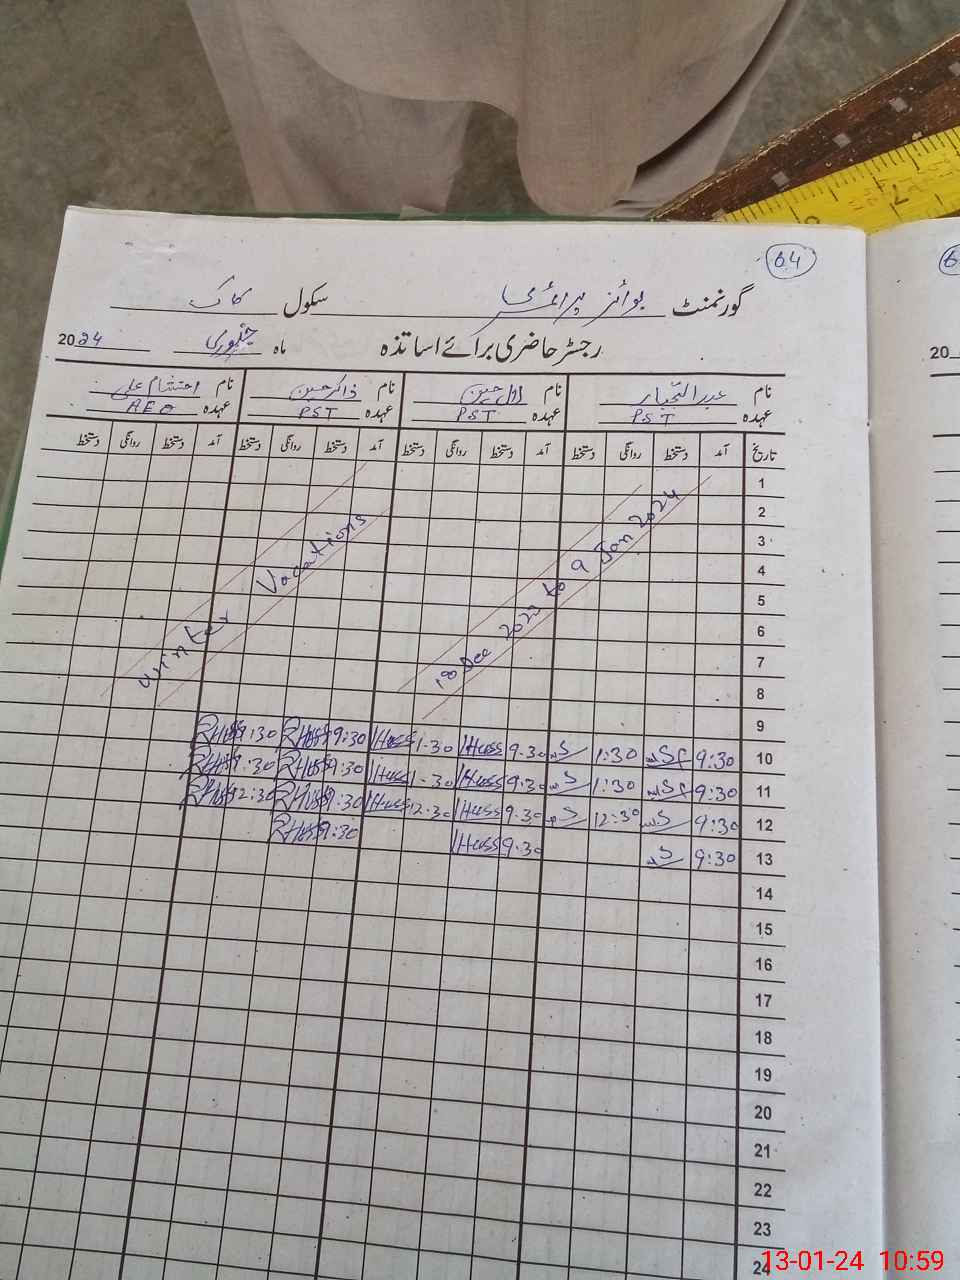 64
گورنمنٹ بوائز پرائمری سکول کاک
رجسٹر حاضری برائے اساتذہ ماہ جنوری 2024
نام عبدالجبار نام نام ذاکر حسین نام احتشام علی
عہدہ PST عہدہ PST عہدہ PST عہدہ AEO
تاریخ آمد دستخط روانگی دستخط آمد دستخط روانگی دستخط آمد دستخط روانگی دستخط آمد دستخط روانگی دستخط
1
2
3
4
5
6
7
8
winter Vacations
18 Dec 2023 to 9 Jan 2024
9
10 9:30 1:30 9.30 Huss 1.30 Huss 9:30 1:30
11 9:30 1:30 9.30 Huss 1.30 Huss 9:30 1:30
12 9:30 12:30 9.30 Huss 12.30 Huss 9:30 12:30
13 9:30 9.30 Huss 9:30
14
15
16
17
18
19
20
21
22
23
24
20
6
2
13-01-24 10:59